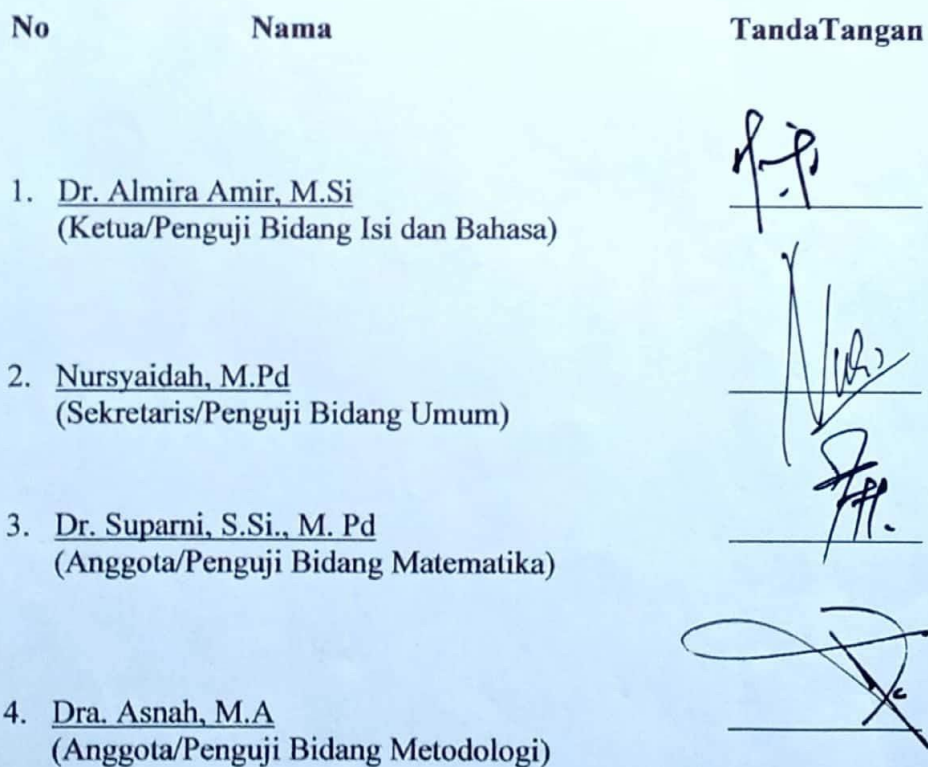 No Nama TandaTangan
1. Dr. Almira Amir, M.Si
(Ketua/Penguji Bidang Isi dan Bahasa)
2. Nursyaidah, M.Pd
(Sekretaris/Penguji Bidang Umum)
3. Dr. Suparni, S.Si., M. Pd
(Anggota/Penguji Bidang Matematika)
4. Dra. Asnah, M.A
(Anggota/Penguji Bidang Metodologi)